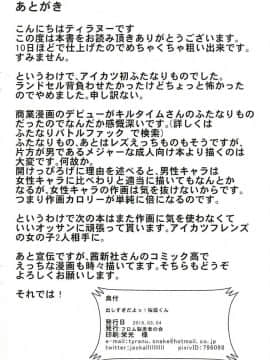 あとがき
こんにちはティラヌーです
この度は本書をお読み頂きありがとうございます。
10日ほどで仕上げたのでめちゃくちゃ粗い出来です。
すみません。
というわけで、アイカツ初ふたなりものでした。
ランドセル背負わせたかったけどちょっと怖かった
のでやめました。申し訳ない。
商業漫画のデビューがキルタイムさんのふたなりもの
だったのでなんだか感慨深いです。(詳しくは
ふたなりバトルファック で検索)
ふたなりもの、あとはレズえっちものもそうですが、
片方が男であるメジャーな成人向け本より描くのは
大変です。何故か。
開けっぴろげに理由を述べると、男性キャラは
女性キャラに比べわりと適当に描いてもなんとか
なるが、女性キャラの作画は気を抜けないからです。
つまり作画カロリーが単純に倍になるのです。
というわけで次の本はまた作画に気を使わなくて
いいオッサンに頑張って貰います。アイカツフレンズ
の女の子2人相手に。
あと宣伝ですが、茜新社さんのコミック高で
えっちな漫画も時々描いてます。そちらもどうぞ
よろしくお願いします。
それでは!
奥付
発行日
発行 フロム脳患者の会
印刷 栄光 様